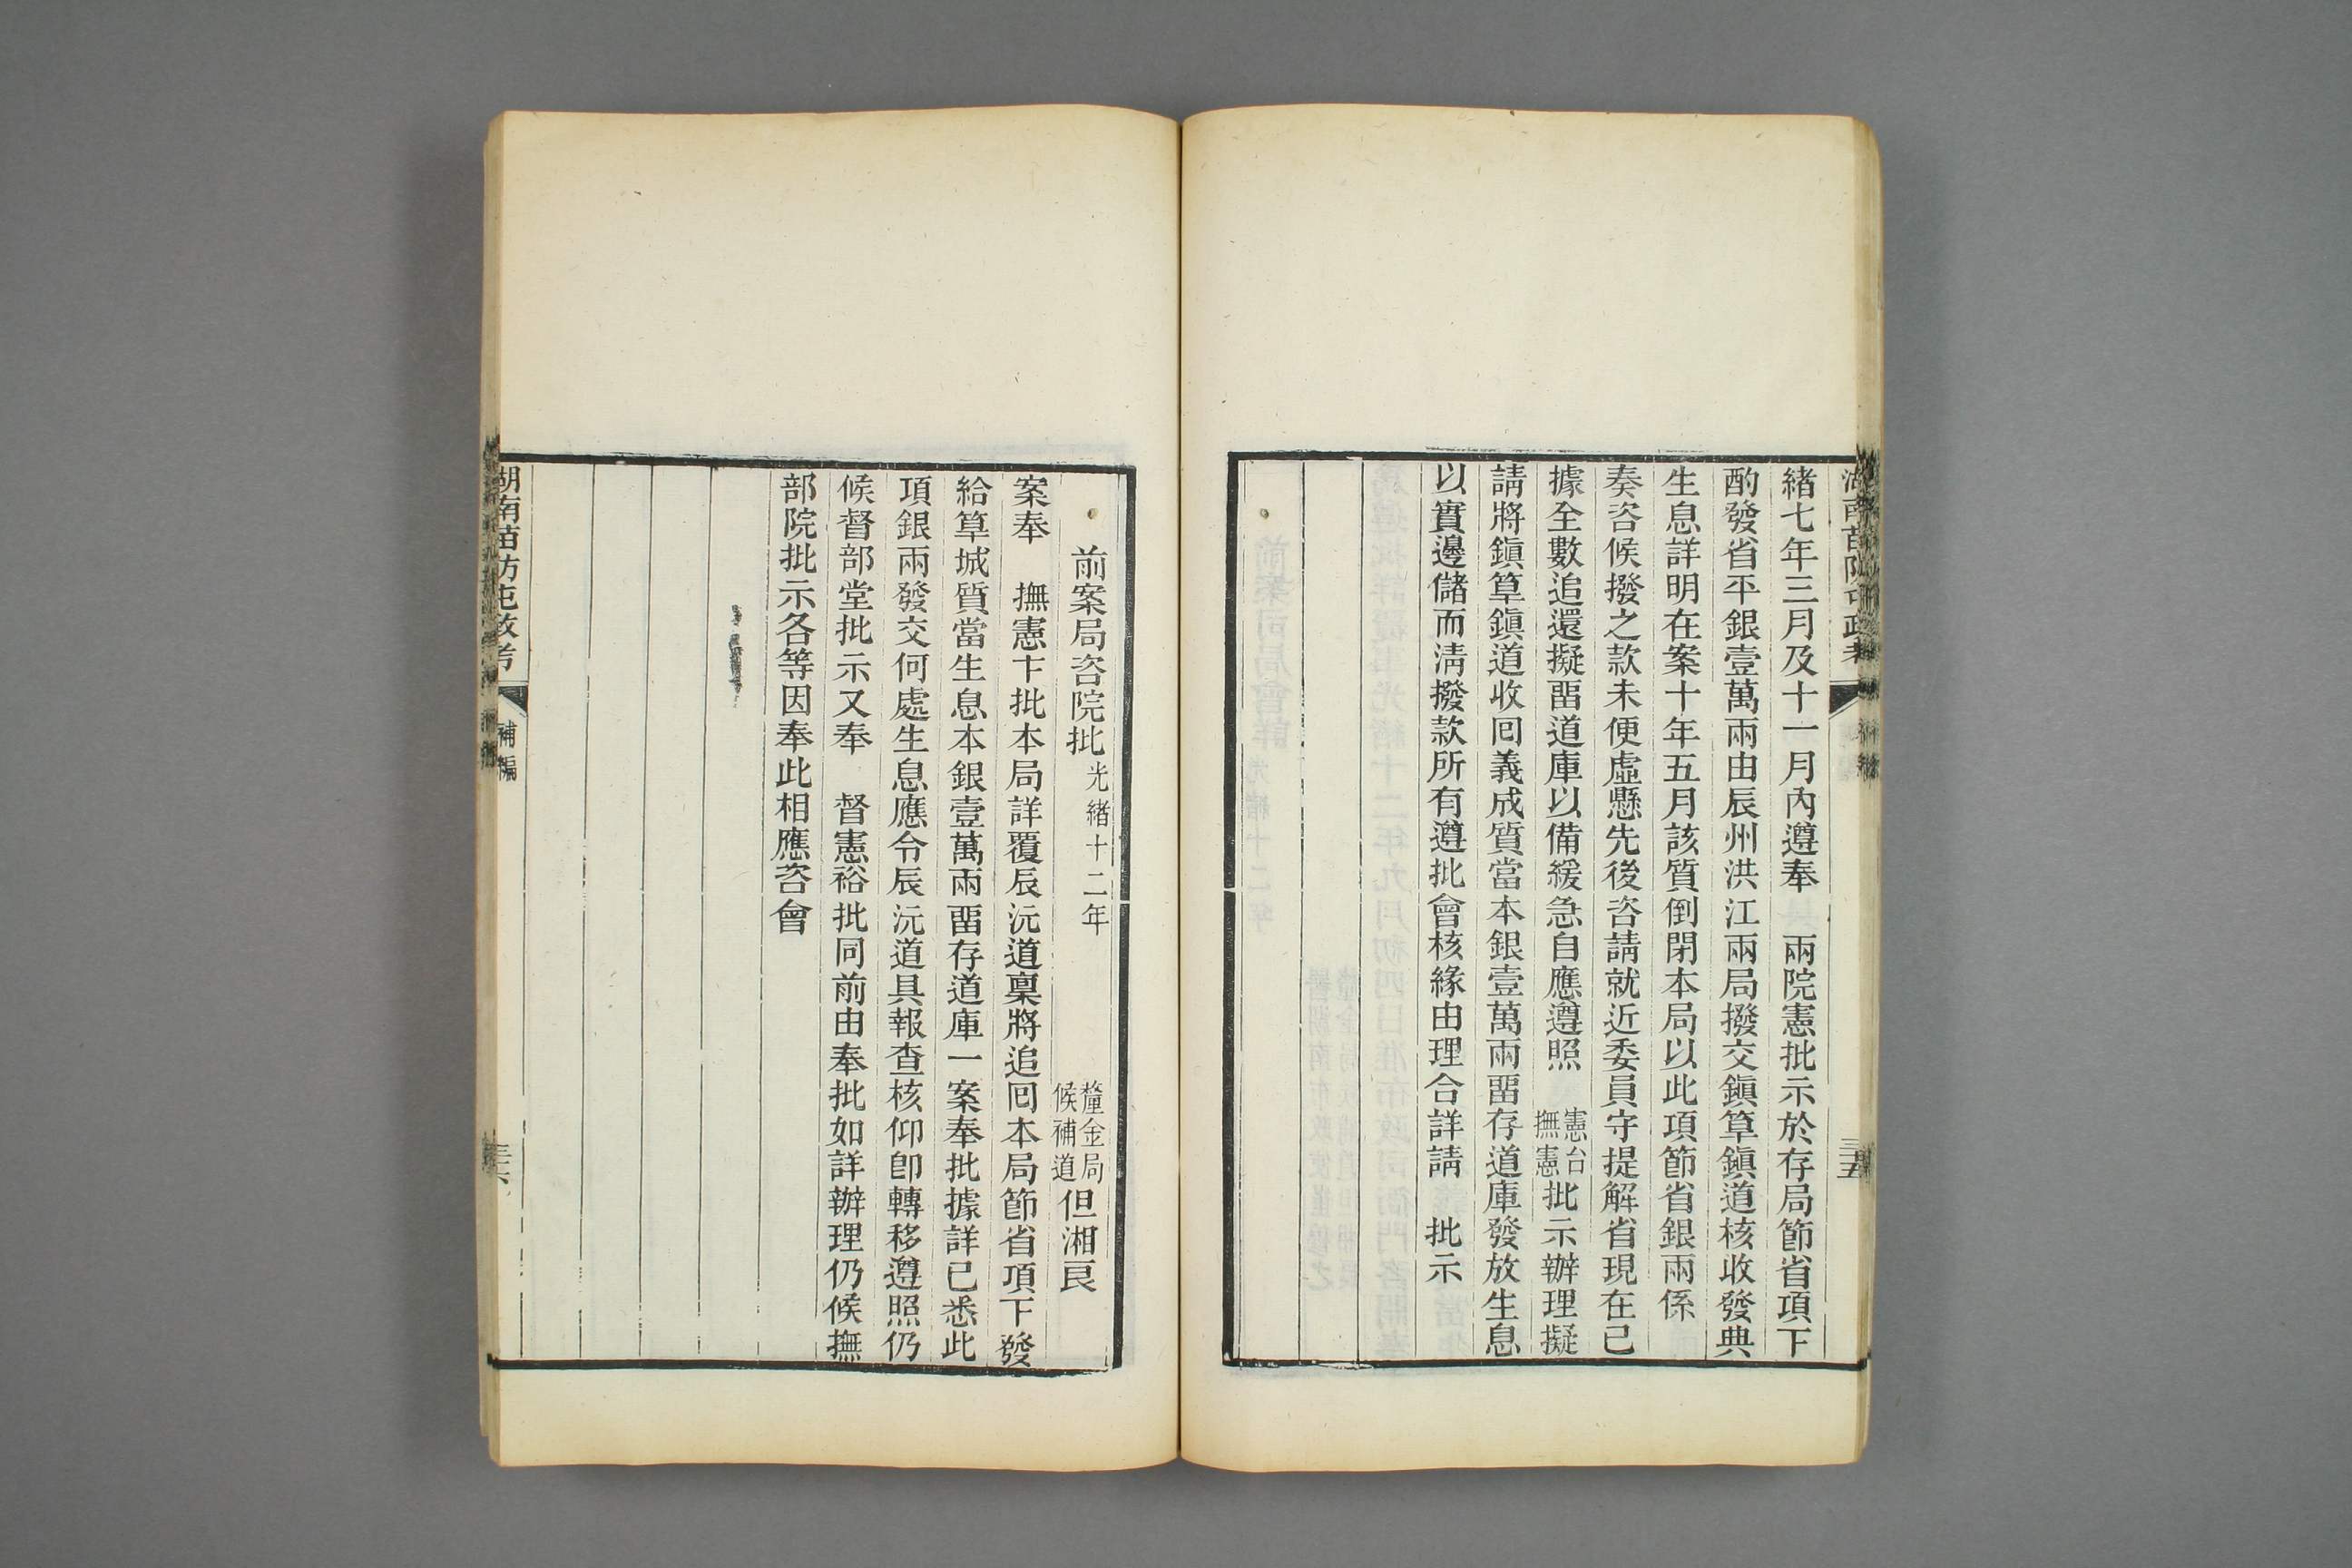 湖南苗防屯政考
三五
緒七年三月及十一月內遵奉　兩院憲批示於存局節省項下
酌發省平銀壹萬兩由辰州洪江兩局撥交鎭筸鎭道核收發典
生息詳明在案十年五月該質倒閉本局以此項節省銀兩係
奏咨候撥之款未便虛懸先後咨請就近委員守提解省現在已
據全數追還擬畱道庫以備緩急自應遵照　憲台撫憲批示辦理擬
請將鎭筸鎭道收囘義成質當本銀壹萬兩畱存道庫發放生息
以實邊儲而淸撥款所有遵批會核緣由理合詳請　批示
前案局咨院批光緒十二年　釐金局候補道但湘良
案奉　撫憲卞批本局詳覆辰沅道稟將追囘本局節省項下發
給筸城質當生息本銀壹萬兩畱存道庫一案奉批據詳已悉此
項銀兩發交何處生息應令辰沅道具報查核仰卽轉移遵照仍
候督部堂批示又奉　督憲裕批同前由奉批如詳辦理仍候撫
部院批示各等因奉此相應咨會
湖南苗防屯政考
補編
三六